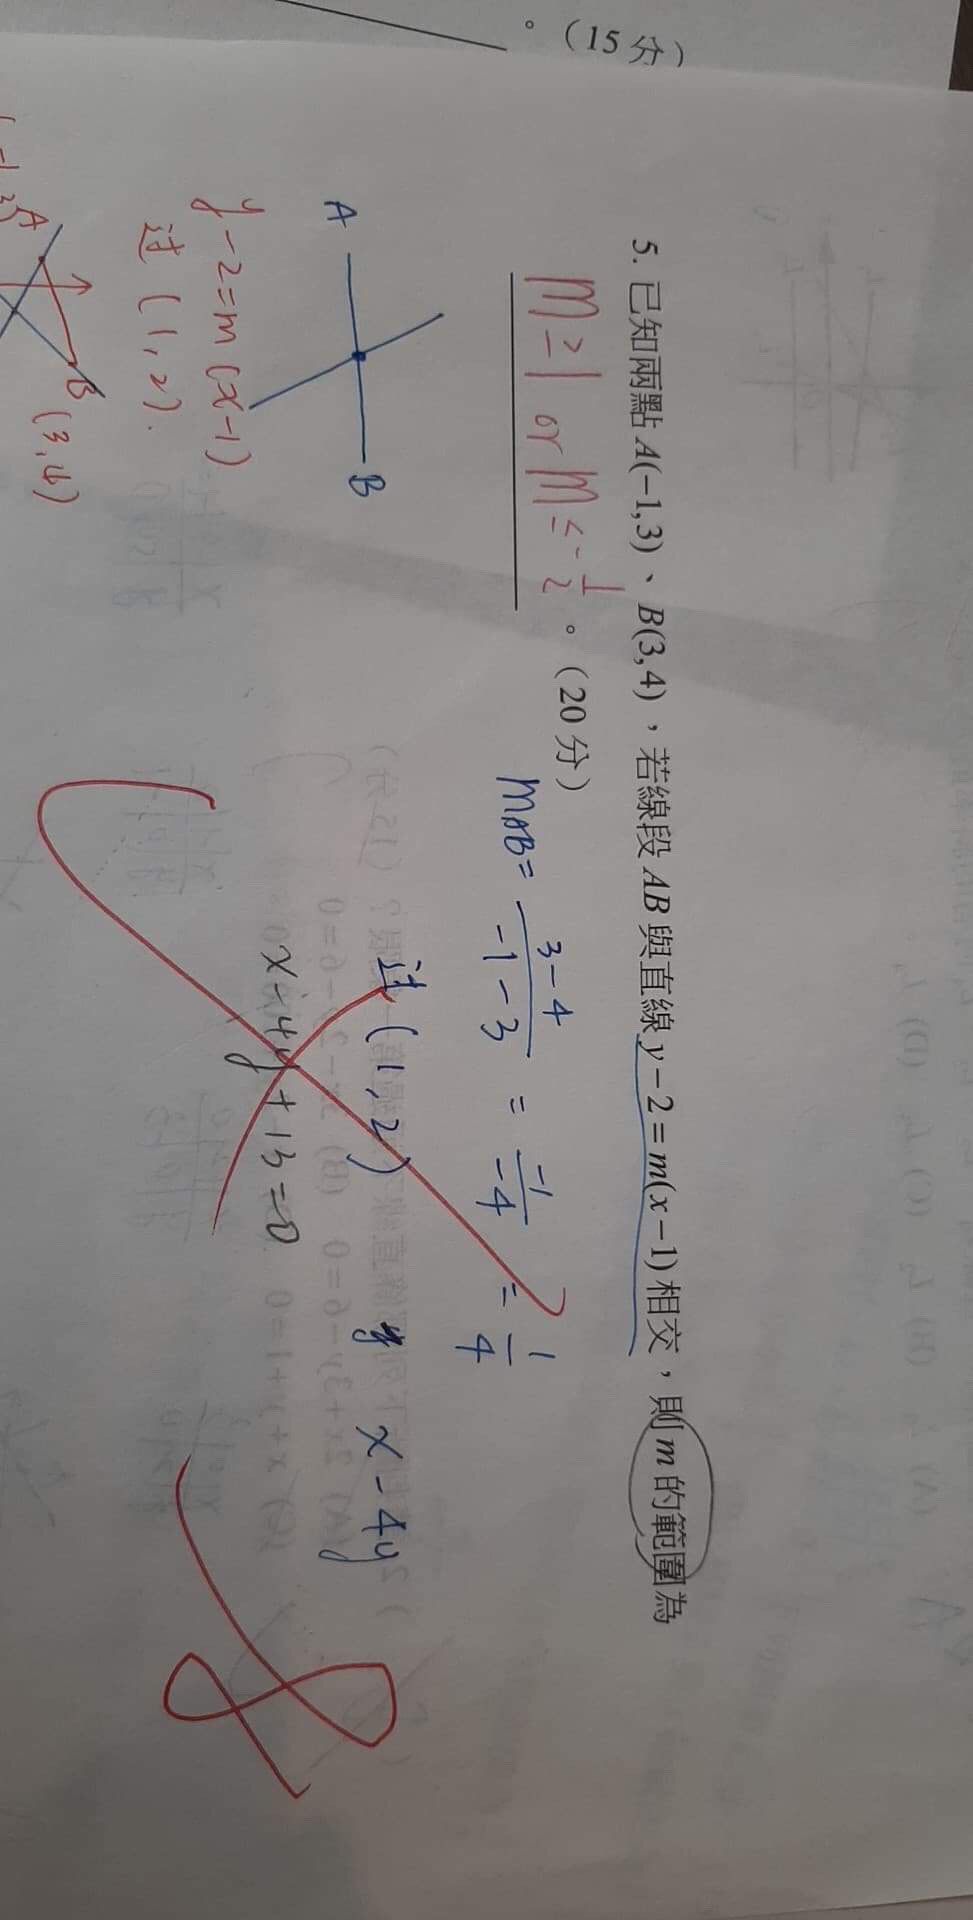 。（15分）
5. 已知兩點 A(−1,3)、B(3,4)，若線段 AB 與直線 y−2=m(x−1) 相交，則 m 的範圍為
m≥1 or m≤-1/2 。（20分）
mAB= 3-4/-1-3 = -1/-4 = 1/4
A B
过 (1,2) y x-4y
x-4y+13=0
y-2=m(x-1)
过 (1,2).
A B (3,4)